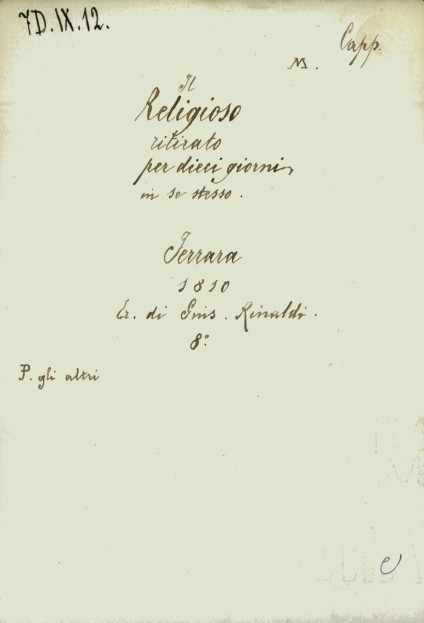 7D.IX.12.
Capp.
M.
Il
Religioso
ritirato
per dieci giorni
in se stesso.
Ferrara
1810
Er. di Gius. Rinaldi.
8.°
P. gli altri